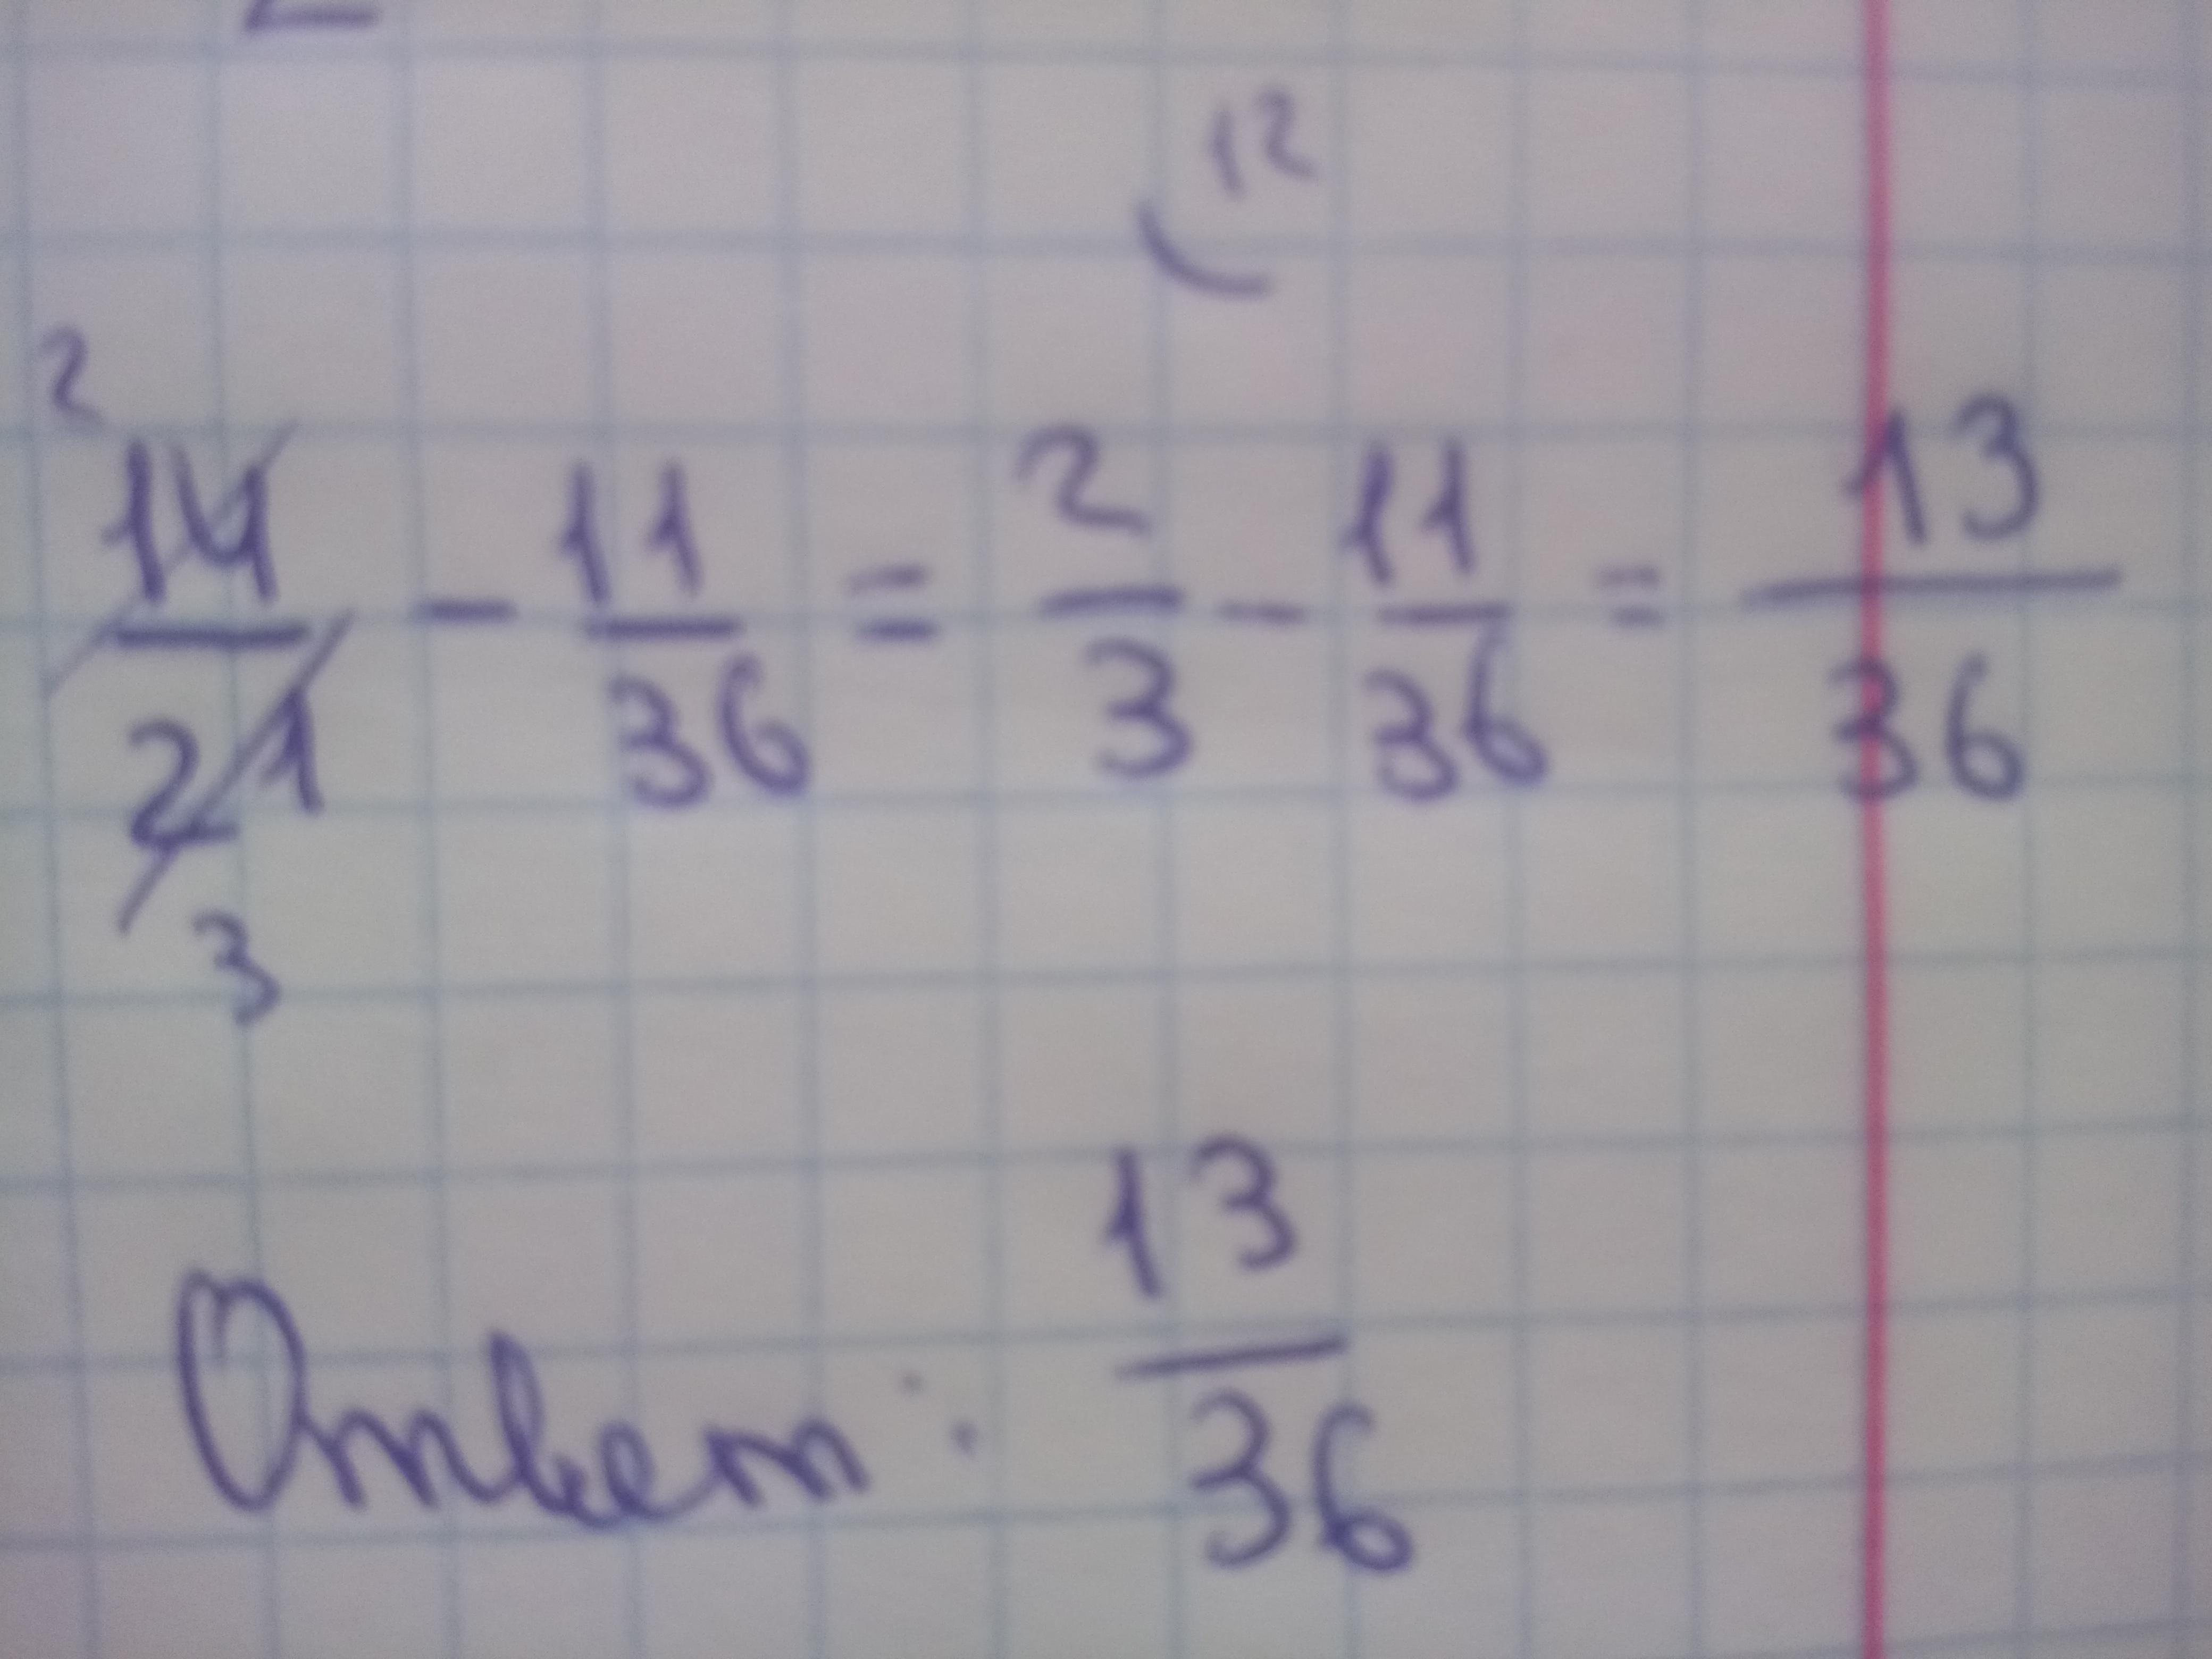 12
2
14/21 - 11/36 = 2/3 - 11/36 = 13/36
3
Ответ: 13/36